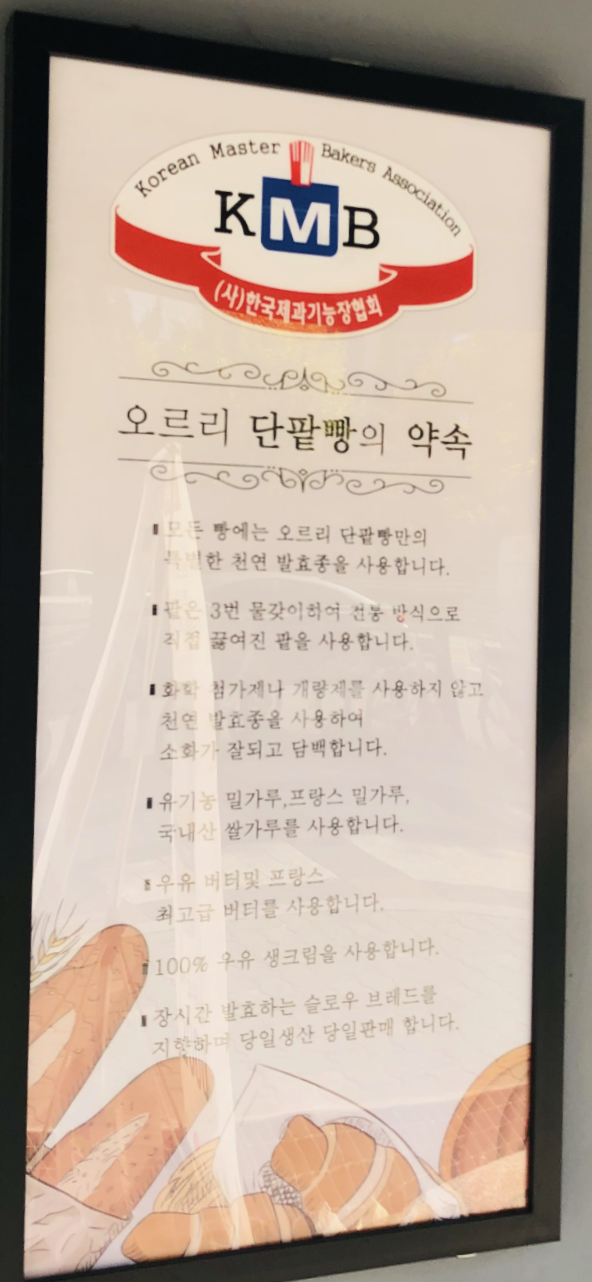 Korean Master Bakers Association
KMB
(사)한국제과기능장협회
오르리 단팥빵의 약속
모든 빵에는 오르리 단팥빵만의
특별한 천연 발효종을 사용합니다.
팥은 3번 물갖이하여 전통 방식으로
직접 끓여진 팥을 사용합니다.
화학 첨가제나 개량제를 사용하지 않고
천연 발효종을 사용하여
소화가 잘되고 담백합니다.
유기농 밀가루,프랑스 밀가루,
국내산 쌀가루를 사용합니다.
우유 버터및 프랑스
최고급 버터를 사용합니다.
100% 우유 생크림을 사용합니다.
장시간 발효하는 슬로우 브레드를
지향하며 당일생산 당일판매 합니다.